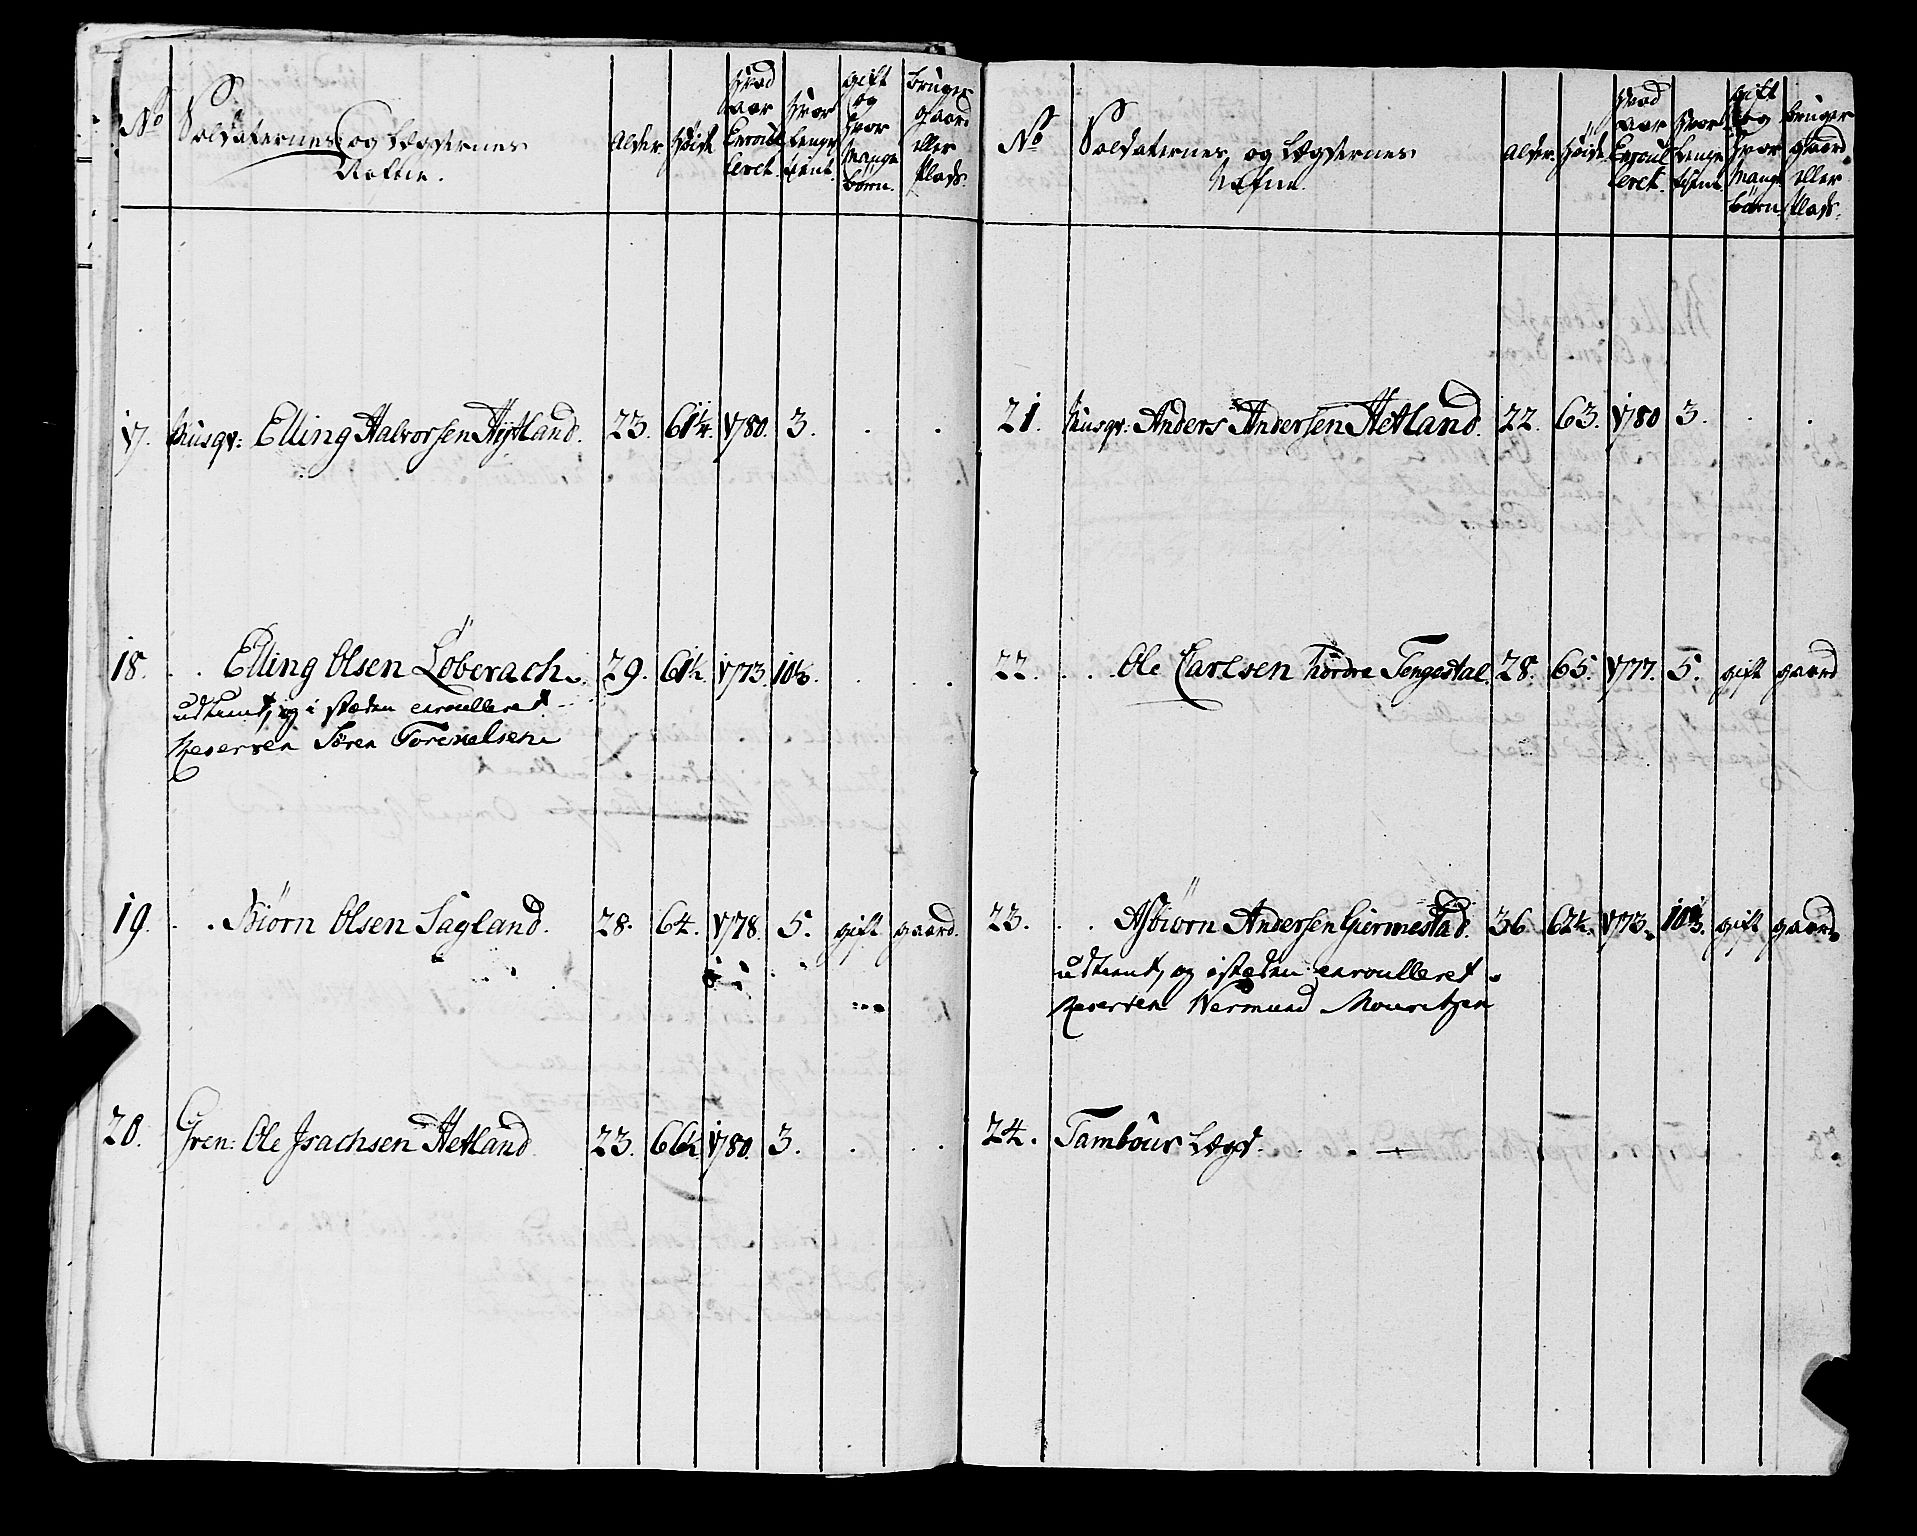 No Soldaternes og Lægdernes Nafne. Alder Høide Hvad aar Enroulleret. Hvor Lenge tient. gift og Hvor Mange børn. bruger gaard eller Plads.
17. Musqr: Elling Halvorsen Hetland. 23. 61¼. 1780. 3. . .
18. . . Elling Olsen Løberach. 29. 61½ 1773. 10½. . .
udtient, og i stæden enroulleret
Reserven Søren Torkelsen
19. . . Biørn Olsen Sagland. 28. 64. 1778. 5. gift gaard.
20. Gren: Ole Isachsen Hetland. 23. 66½ 1780. 3. . .
No Soldaternes og Lægdernes Nafne. Alder. Høide. Hvad aar Enroulleret. Hvor Lenge tient. gift og Hvor Mange børn. bruger gaard eller Plads.
21. Musqr: Anders Andersen Hetland. 22. 63. 1780 3. . .
22. . . Ole Carlsen Tengesdal. 28. 65. 1777. 5. gift gaard
23. . . Asbiørn Andersen Giermestad. 36. 62½. 1773. gift gaard.
udtient, og istæden enroulleret
Reserven Wermund Mouritzen
24. Tambour Lægd. . . —